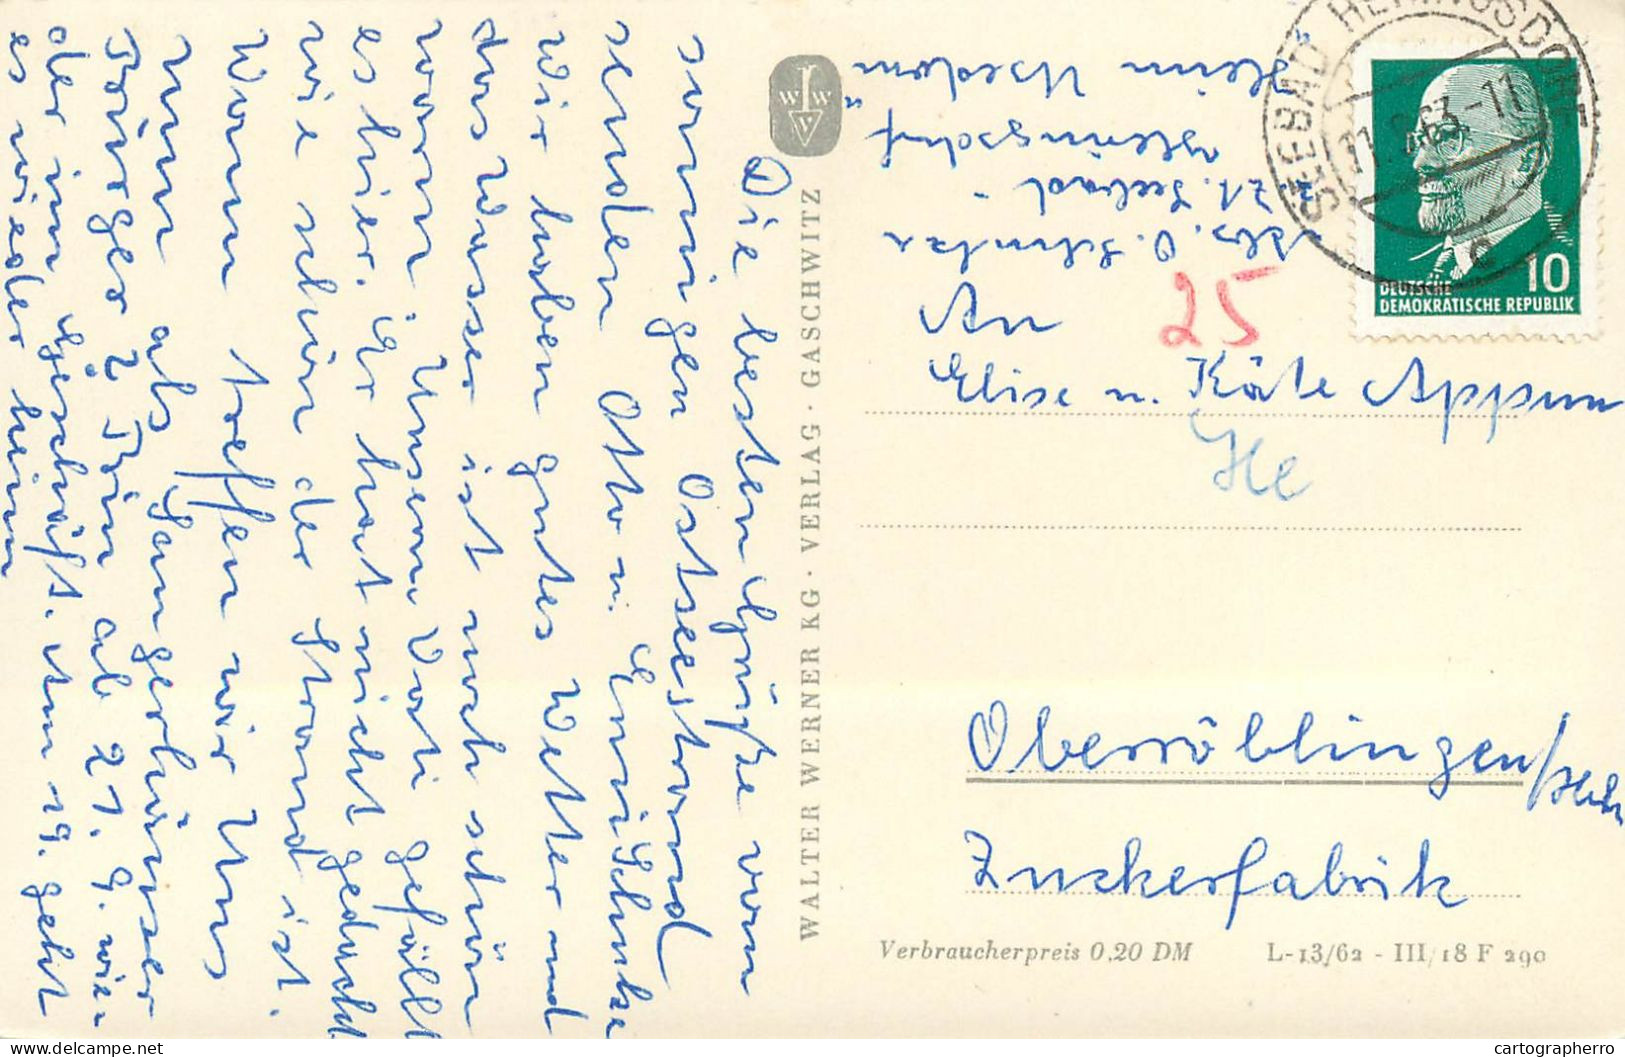 Die besten Grüße vom
sonnigen Ostseestrand
senden Otto u. Erni Schunke
Wir haben gutes Wetter und
das Wasser ist noch schön
warm. Unserm Vati gefällt
es hier. Er hat nicht gedacht
wie schön der Strand ist.
Wann treffen wir Uns
nun als Sangerhäuser
Bürger? Bin ab 21. 9. wie-
der im Geschäft. Am 19. geht
es wieder heim
WALTER WERNER KG · VERLAG · GASCHWITZ
W W
V
Abs. O. Schunke
z. Zt. Seebad -
Heringsdorf
"Heim Usedom"
SEEBAD HERINGSDORF
.63.-11
e
10
DEUTSCHE
DEMOKRATISCHE REPUBLIK
25
An
Elise u. Käte Appun
He
Oberröblingen/Helme
Zuckerfabrik
Verbraucherpreis 0,20 DM L-13/62 - III/18 F 290
cartographerro